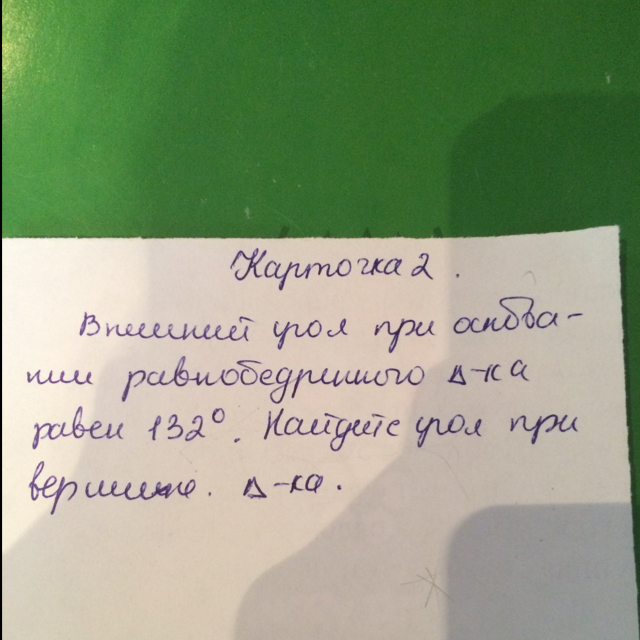 Карточка 2.
Внешний угол при основа-
нии равнобедренного Δ-ка
равен 132°. Найдите угол при
вершине. Δ-ка.